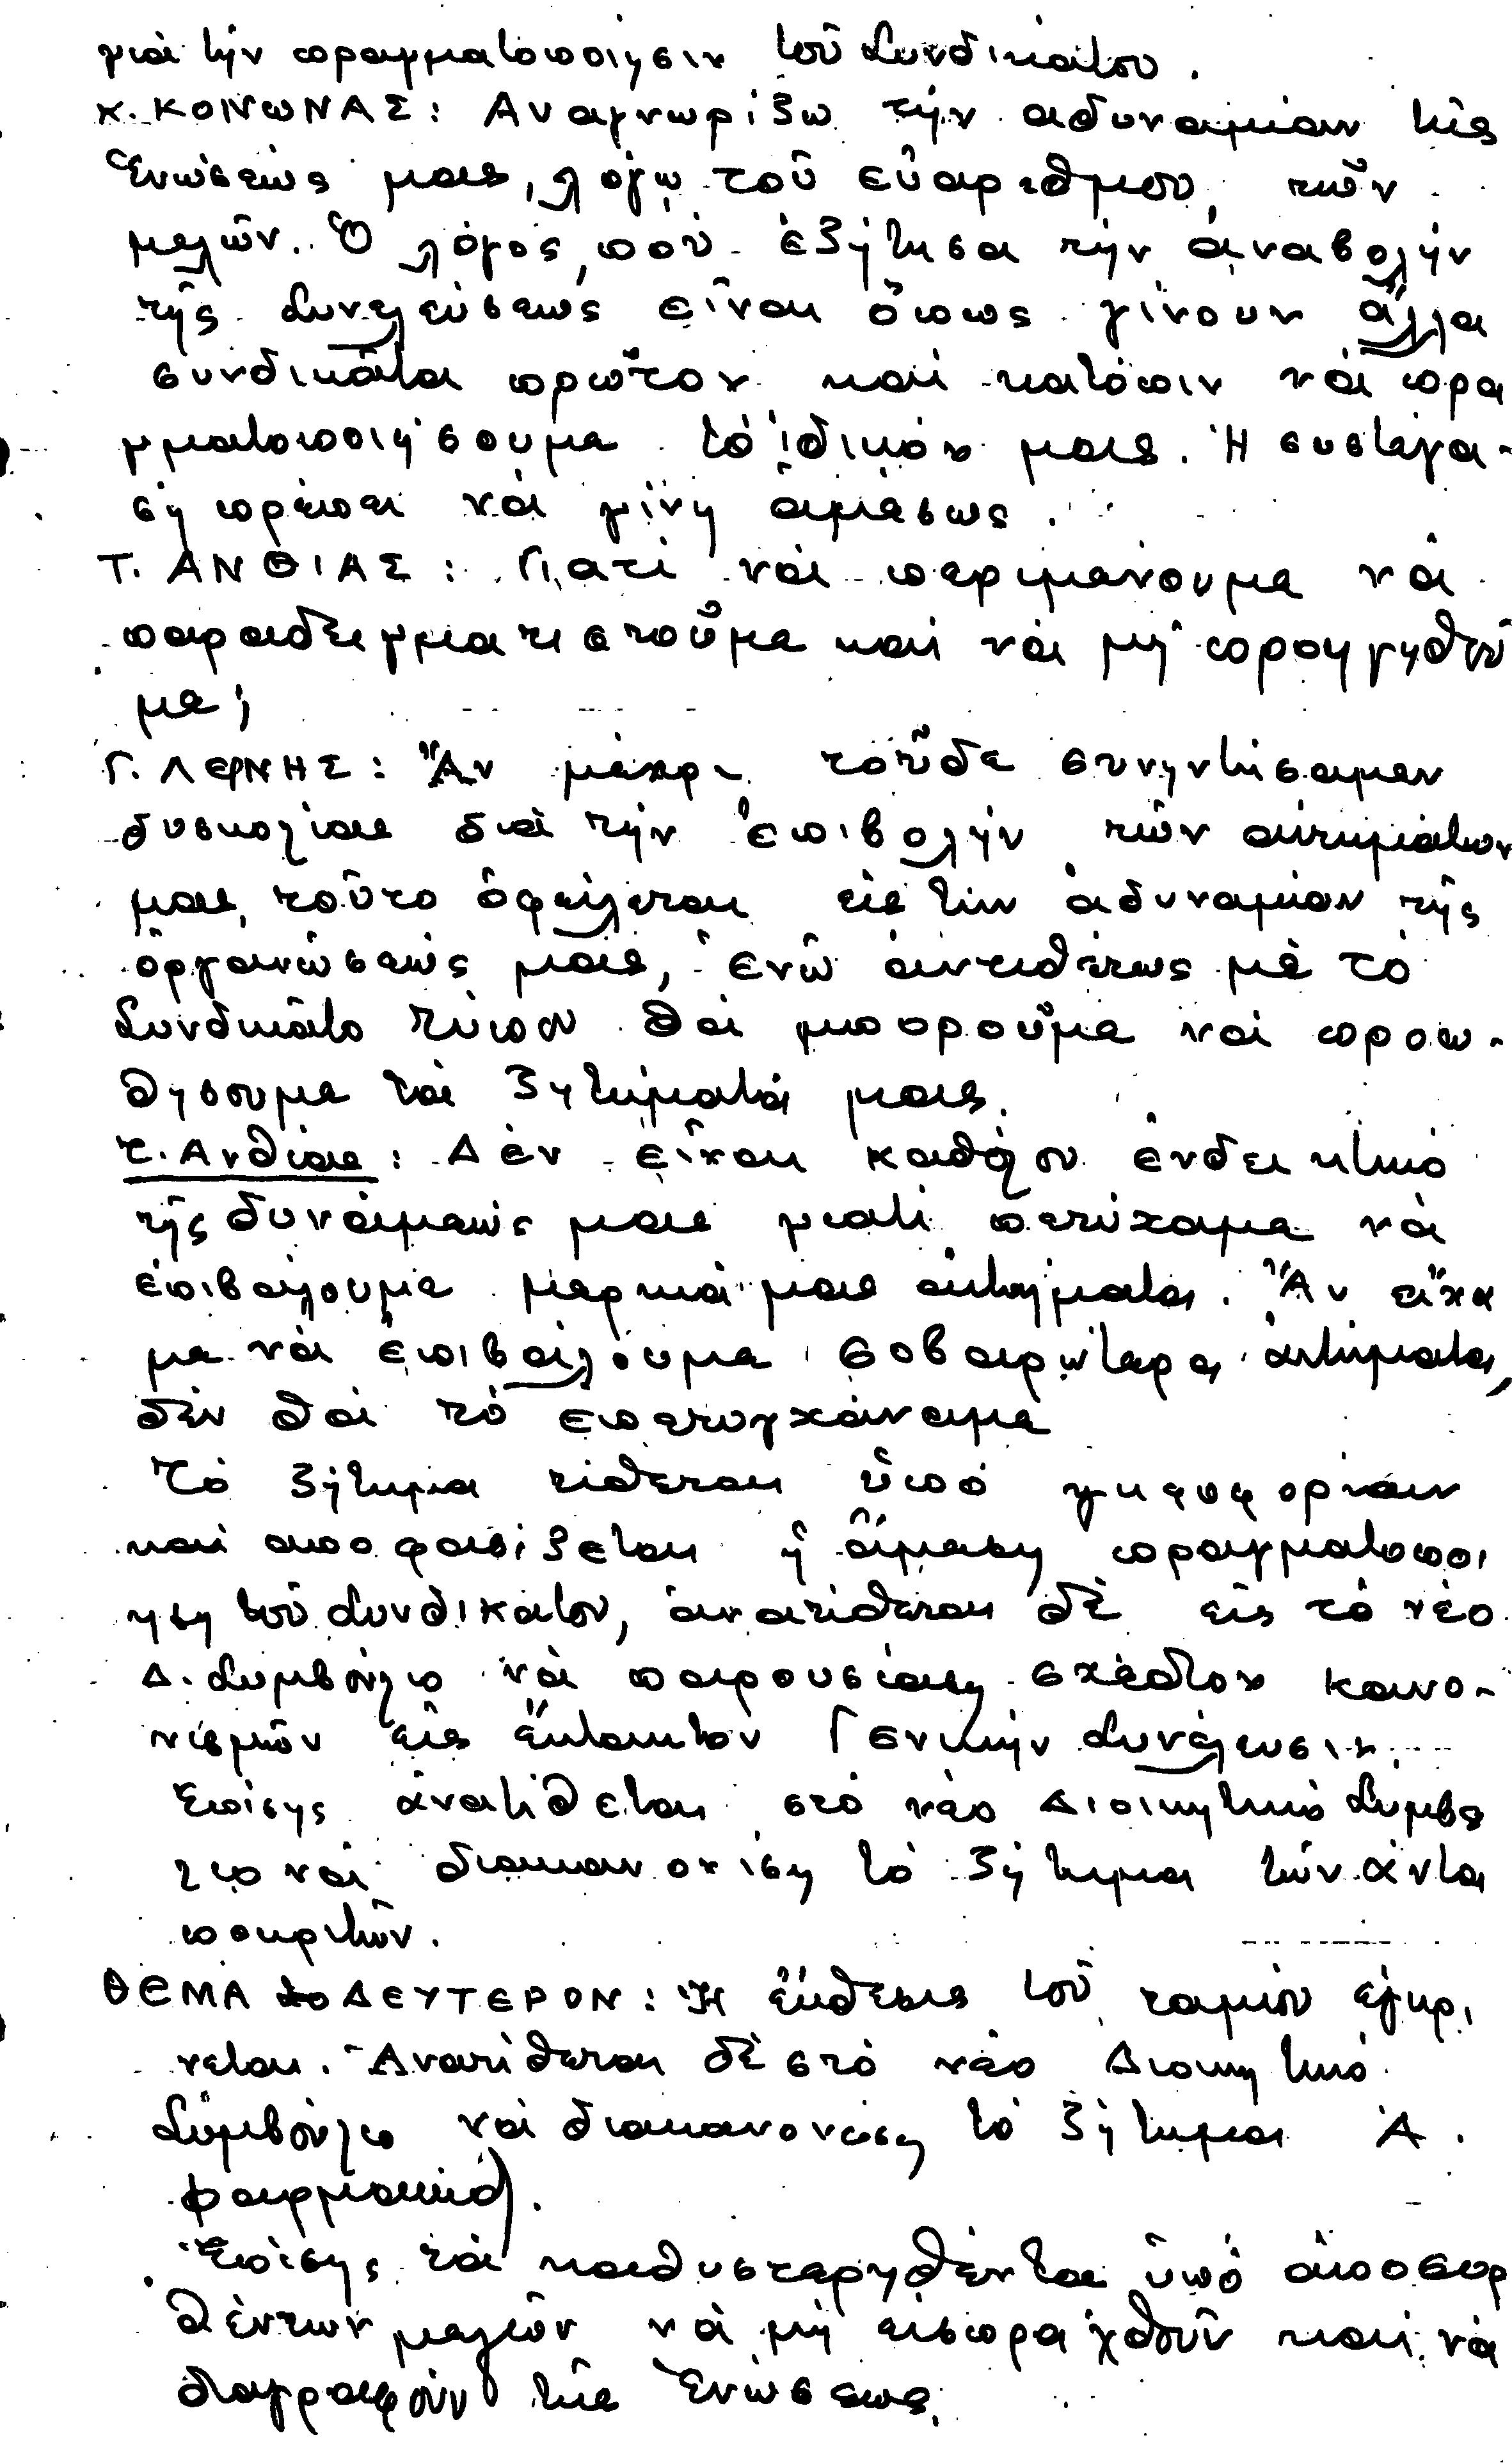 γιὰ τὴν πραγματοποίησιν τοῦ Συνδικάτου.
Κ. ΚΟΝΩΝΑΣ: Αναγνωρίζω τὴν αδυναμίαν τῆς
Ἑνώσεώς μας, λόγῳ τοῦ εὐαρίθμου τῶν
μελῶν. Ὁ λόγος, ποὺ ἐζήτησα τὴν ἀναβολὴν
τῆς Συνελεύσεως εἶναι ὅπως γίνουν ἄλλα
συνδικᾶτα πρῶτον καὶ κατόπιν νὰ πρα
γματοποιήσουμε τὸ ἰδικόν μας. Ἡ συστέγα-
ση πρέπει νὰ γίνῃ ἀμέσως.
Τ. ΑΝΘΙΑΣ: Γιατὶ νὰ περιμένουμε νὰ
παραδειγματιστοῦμε καὶ νὰ μὴ προηγηθοῦ
με;
Γ. ΛΕΡΝΗΣ: Ἂν μέχρι τοῦδε συνηντήσαμεν
δυσκολίας διὰ τὴν ἐπιβολὴν τῶν αἰτημάτων
μας, τοῦτο ὀφείλεται εἰς τὴν ἀδυναμίαν τῆς
ὀργανώσεώς μας, ἐνῶ ἀντιθέτως μὲ τὸ
Συνδικᾶτο τύπου θὰ μποροῦμε νὰ προω-
θήσουμε τὰ ζητήματά μας.
Τ. Ανθίας: Δὲν εἶναι καθόλου ἐνδεικτικὸ
τῆς δυνάμεώς μας γιατὶ πετύχαμε νὰ
ἐπιβάλουμε μερικά μας αἰτήματα. Ἂν εἴχα
με νὰ ἐπιβάλουμε σοβαρώτερα αἰτήματα,
δὲν θὰ τὸ επετυγχάναμε
Τὸ ζήτημα τίθεται ὑπὸ ψηφοφορίαν
καὶ αποφασίζεται ἡ ἄμεση πραγματοποί
ηση τοῦ Συνδικάτου, ἀνατίθεται δὲ εἰς τὸ νέο
Δ. Συμβούλιο νὰ παρουσιάσῃ σχέδιον κανο-
νισμῶν εἰς ἔκτακτον Γενικὴν Συνέλευσιν.
Ἐπίσης ἀνατίθεται στὸ νέο Διοικητικὸ Συμβού
λιο νὰ διακανονίσῃ τὸ ζήτημα τῶν ἀντα
ποκριτῶν.
ΘΕΜΑ ΔΕΥΤΕΡΟΝ: Ἡ ἔκθεσις τοῦ ταμίου ἐγκρί
νεται. Ἀνατίθεται δὲ στὸ νέο Διοικητικὸ
Συμβούλιο νὰ διακανονίσῃ τὸ ζήτημα Ἀ.
Φαρμακίδ).
Ἐπίσης τὰ καθυστερηθέντα ὑπὸ ἀποσυρ
θέντων μελῶν νὰ μὴ εἰσπραχθοῦν καὶ νὰ
διαγραφοῦν τῆς Ἑνώσεως.